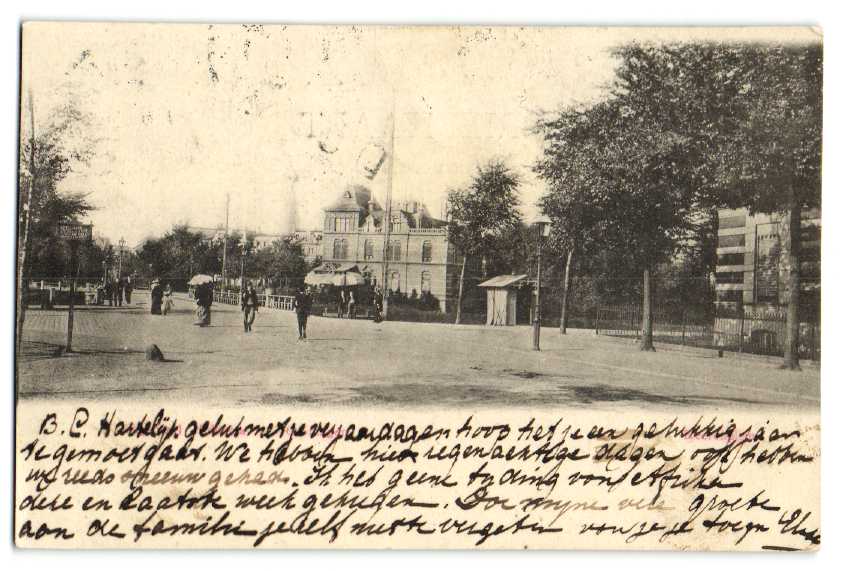 B. C. Hartelijk geluk met je verjaardag en hoop het je een gelukkig jaar
te gemoet gaat. We hebben hier regenachtige dagen ook hebben
we reeds sneeuw gehad. Ik heb geene tyding van Afrika
deze en laatste week gekregen. Doe myne vele groete
aan de familie jezelf niet te vergeten van je je toegn